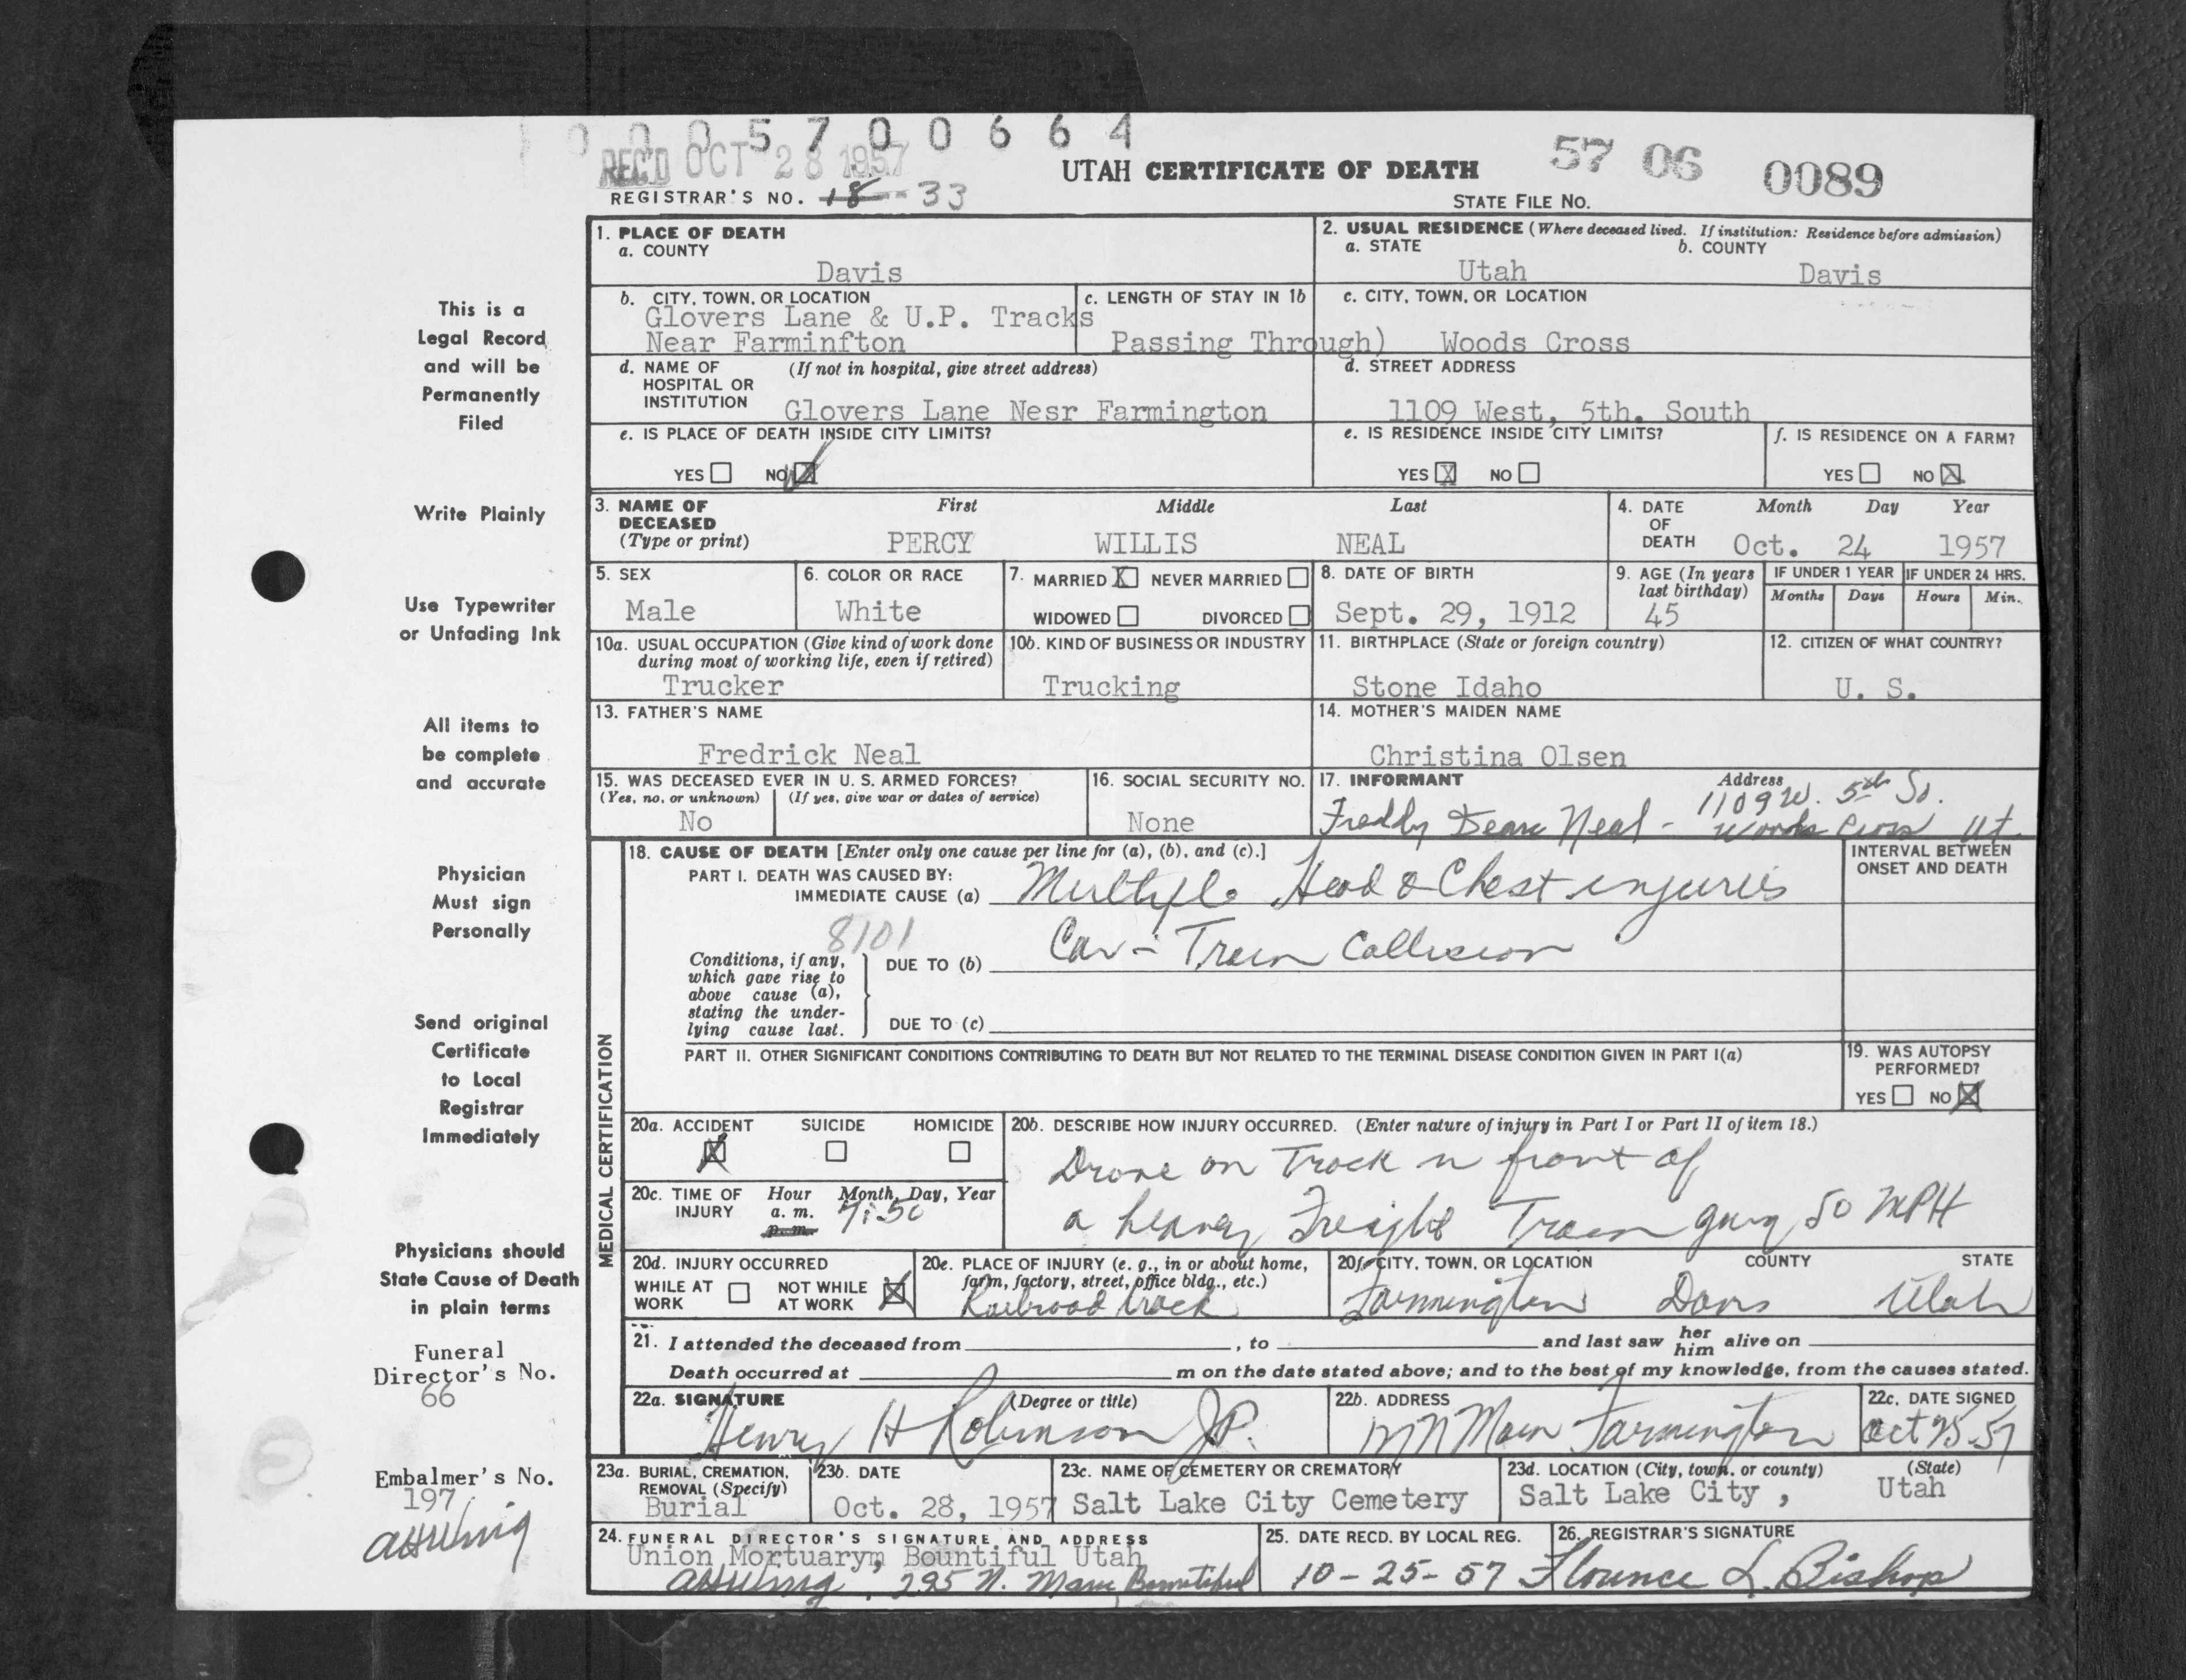 0 0 0 5 7 0 0 6 6 4
REC'D OCT 28 1957
UTAH CERTIFICATE OF DEATH
57 06 0089
REGISTRAR'S NO. 18 -- 33
STATE FILE No.
1. PLACE OF DEATH
a. COUNTY
Davis
2. USUAL RESIDENCE (Where deceased lived. If institution: Residence before admission)
a. STATE
Utah
b. COUNTY
Davis
b. CITY, TOWN, OR LOCATION
Glovers Lane & U.P. Tracks
Near Farminfton
c. LENGTH OF STAY IN 1b
Passing Through)
c. CITY, TOWN, OR LOCATION
Woods Cross
d. NAME OF HOSPITAL OR INSTITUTION (If not in hospital, give street address)
Glovers Lane Nesr Farmington
d. STREET ADDRESS
1109 West, 5th. South
e. IS PLACE OF DEATH INSIDE CITY LIMITS?
YES NO X
e. IS RESIDENCE INSIDE CITY LIMITS?
YES X NO
f. IS RESIDENCE ON A FARM?
YES NO X
3. NAME OF DECEASED (Type or print)
First Middle Last
PERCY WILLIS NEAL
4. DATE OF DEATH
Month Day Year
Oct. 24 1957
5. SEX
Male
6. COLOR OR RACE
White
7. MARRIED X NEVER MARRIED
WIDOWED DIVORCED
8. DATE OF BIRTH
Sept. 29, 1912
9. AGE (In years last birthday)
45
IF UNDER 1 YEAR
Months Days
IF UNDER 24 HRS.
Hours Min.
10a. USUAL OCCUPATION (Give kind of work done during most of working life, even if retired)
Trucker
10b. KIND OF BUSINESS OR INDUSTRY
Trucking
11. BIRTHPLACE (State or foreign country)
Stone Idaho
12. CITIZEN OF WHAT COUNTRY?
U. S.
13. FATHER'S NAME
Fredrick Neal
14. MOTHER'S MAIDEN NAME
Christina Olsen
15. WAS DECEASED EVER IN U. S. ARMED FORCES?
(Yes, no, or unknown) (If yes, give war or dates of service)
No
16. SOCIAL SECURITY NO.
None
17. INFORMANT Address
Freddy Deane Neal - 1109 W. 5th So.
Woods Cross Ut.
MEDICAL CERTIFICATION
18. CAUSE OF DEATH [Enter only one cause per line for (a), (b), and (c).]
PART I. DEATH WAS CAUSED BY:
IMMEDIATE CAUSE (a) Multiple Head & Chest injuries
INTERVAL BETWEEN ONSET AND DEATH
8101
Conditions, if any, which gave rise to above cause (a), stating the underlying cause last.
DUE TO (b) Car - Train Collision
DUE TO (c)
PART II. OTHER SIGNIFICANT CONDITIONS CONTRIBUTING TO DEATH BUT NOT RELATED TO THE TERMINAL DISEASE CONDITION GIVEN IN PART I(a)
19. WAS AUTOPSY PERFORMED?
YES NO X
20a. ACCIDENT SUICIDE HOMICIDE
X
20b. DESCRIBE HOW INJURY OCCURRED. (Enter nature of injury in Part I or Part II of item 18.)
Drove on Track in front of
a heavey Freight Train going 50 MPH
20c. TIME OF INJURY
Hour Month, Day, Year
a. m. 7:50
p. m.
20d. INJURY OCCURRED
WHILE AT WORK NOT WHILE AT WORK X
20e. PLACE OF INJURY (e. g., in or about home, farm, factory, street, office bldg., etc.)
Railroad track
20f. CITY, TOWN, OR LOCATION COUNTY STATE
Farmington Davis Utah
21. I attended the deceased from , to and last saw her him alive on
Death occurred at m on the date stated above; and to the best of my knowledge, from the causes stated.
22a. SIGNATURE (Degree or title)
Henry H Robinson JP.
22b. ADDRESS
Main Farmington
22c. DATE SIGNED
Oct 25-57
23a. BURIAL, CREMATION, REMOVAL (Specify)
Burial
23b. DATE
Oct. 28, 1957
23c. NAME OF CEMETERY OR CREMATORY
Salt Lake City Cemetery
23d. LOCATION (City, town, or county) (State)
Salt Lake City , Utah
24. FUNERAL DIRECTOR'S SIGNATURE AND ADDRESS
Union Mortuarym Bountiful Utah
295 N. Main Bountiful
25. DATE RECD. BY LOCAL REG.
10-25-57
26. REGISTRAR'S SIGNATURE
Florence L. Bishop
This is a
Legal Record
and will be
Permanently
Filed
Write Plainly
Use Typewriter
or Unfading Ink
All items to
be complete
and accurate
Physician
Must sign
Personally
Send original
Certificate
to Local
Registrar
Immediately
Physicians should
State Cause of Death
in plain terms
Funeral
Director's No.
66
Embalmer's No.
197